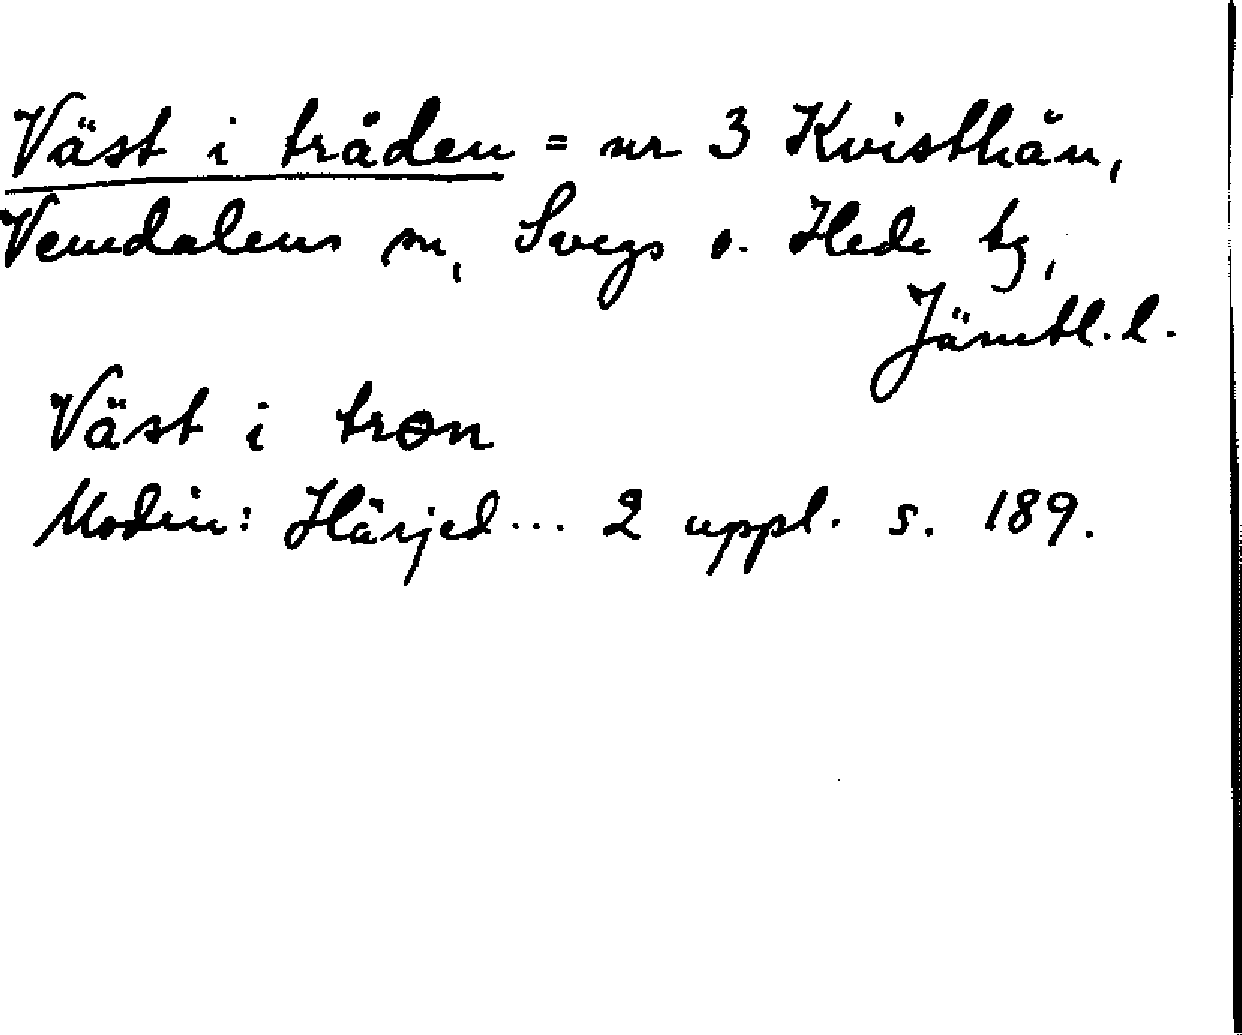 Väst i tråden = nr 3 Kvisthån,
Vemdalens sn, Svegs o. Hede tg,
Jämtl. l.
Väst i tron
Modin: Härjed... 2 uppl. s. 189.